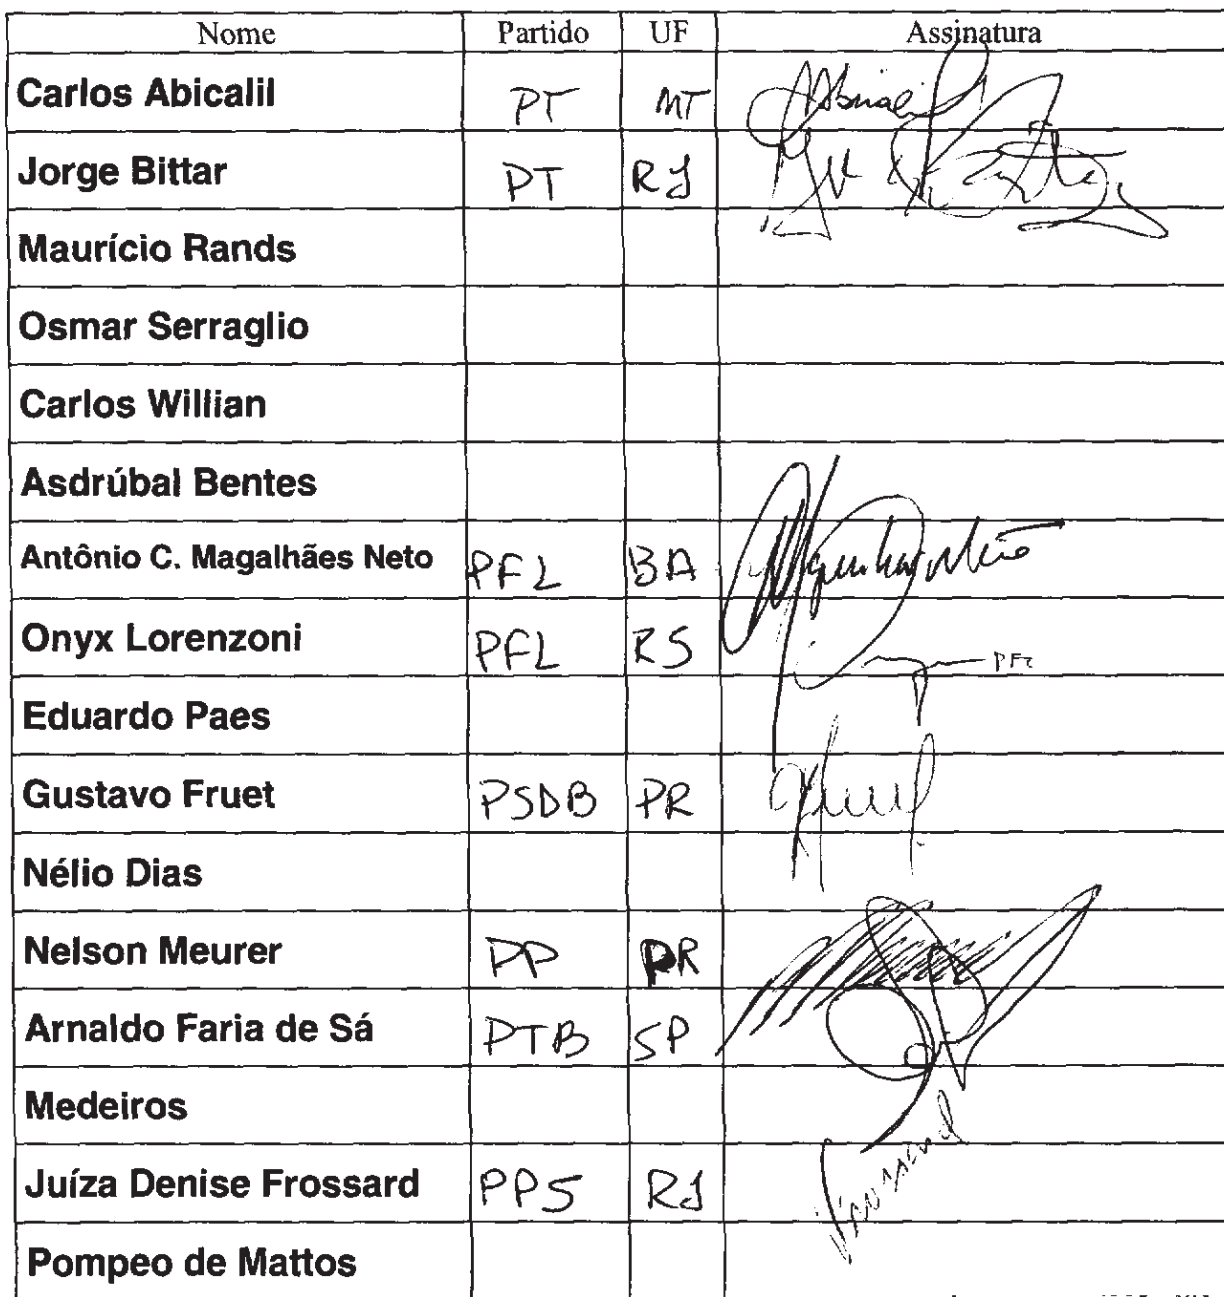 Nome Partido UF Assinatura
Carlos Abicalil PT MT Abicalil
Jorge Bittar PT RJ
Maurício Rands
Osmar Serraglio
Carlos Willian
Asdrúbal Bentes
Antônio C. Magalhães Neto PFL BA
Onyx Lorenzoni PFL RS PFL
Eduardo Paes
Gustavo Fruet PSDB PR
Nélio Dias
Nelson Meurer PP PR
Arnaldo Faria de Sá PTB SP
Medeiros
Juíza Denise Frossard PPS RJ
Pompeo de Mattos